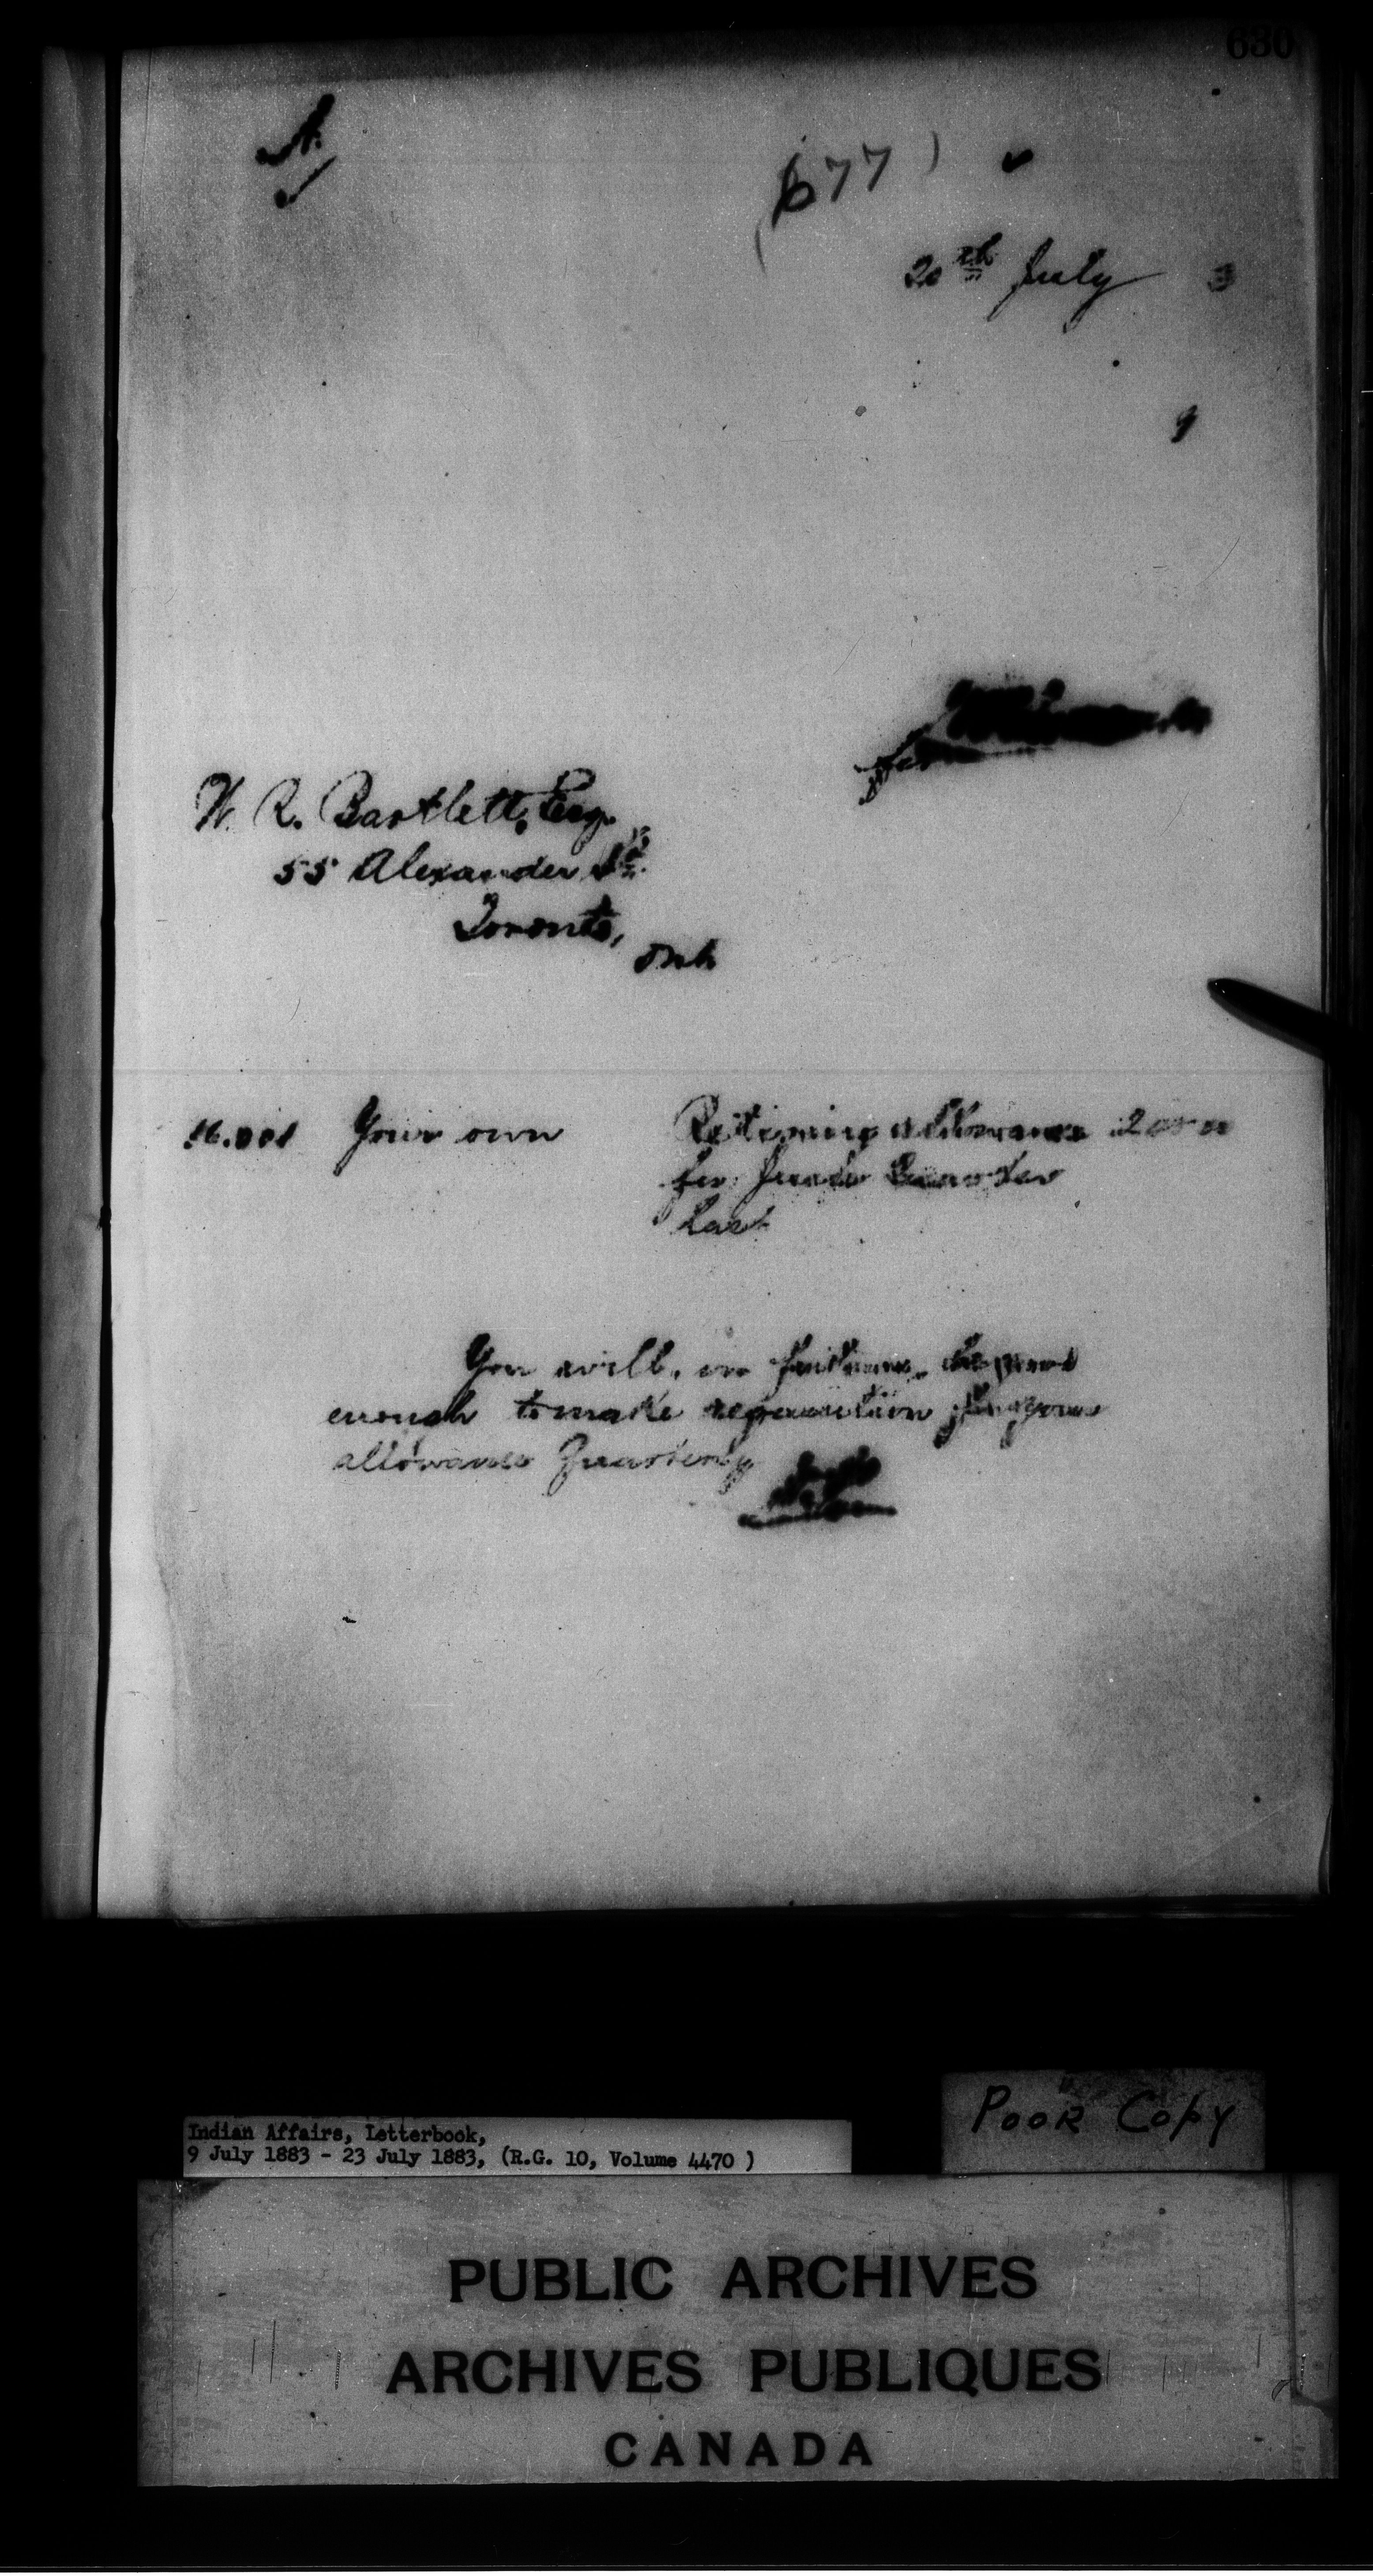 630
A
(677)
20th July 3
9
W. R. Bartlett, Esq.
55 Alexander St.
Toronto,
Ont
Your own Retiring allowance
for June Quarter
last
You will, in future, be good
enough to make requisition for your
allowance Quarterly
Poor Copy
Indian Affairs, Letterbook,
9 July 1883 - 23 July 1883, (R.G. 10, Volume 4470 )
PUBLIC ARCHIVES
ARCHIVES PUBLIQUES
CANADA